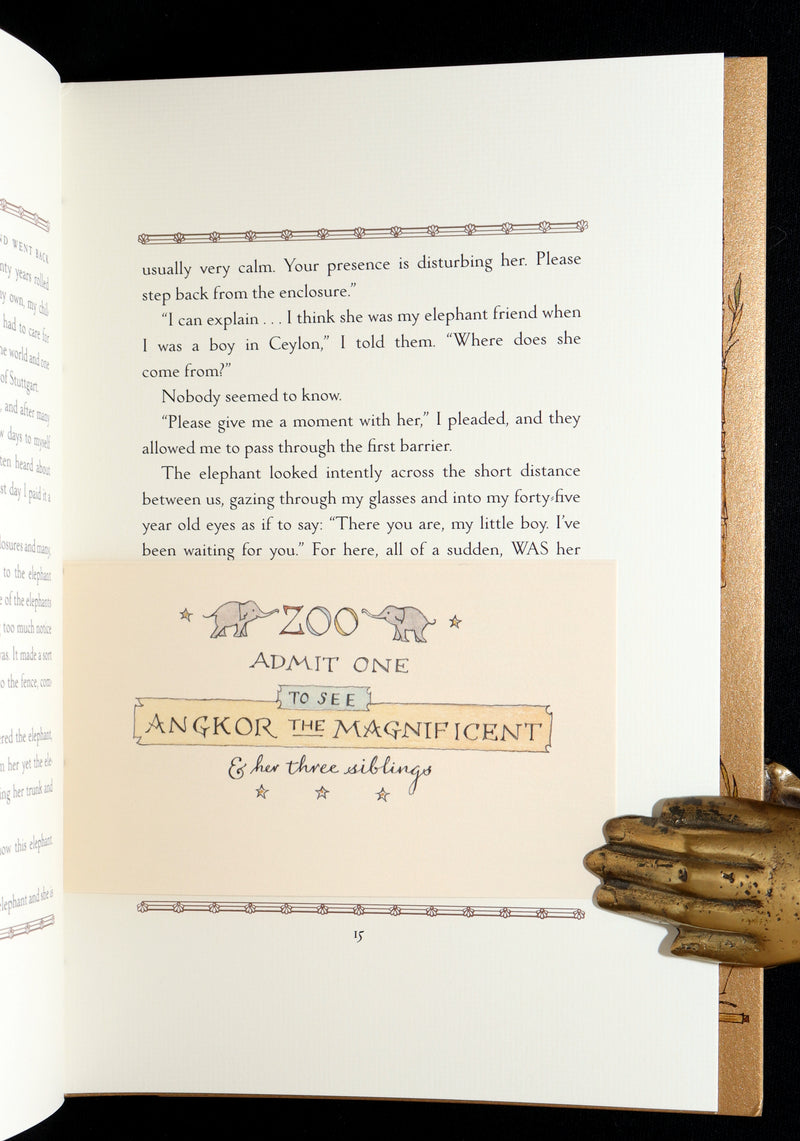 ND WENT BACK
nty years rolled
ny own, my chil-
had to care for
he world and one
of Stuttgart.
, and after many
w days to myself
ten heard about
st day I paid it a
losures and many,
to the elephant
e of the elephants
too much notice
was. It made a sort
o the fence, com-
ered the elephant,
n her yet the ele-
ing her trunk and
now this elephant.
elephant and she is
usually very calm. Your presence is disturbing her. Please
step back from the enclosure.”
“I can explain . . . I think she was my elephant friend when
I was a boy in Ceylon,” I told them. “Where does she
come from?”
Nobody seemed to know.
“Please give me a moment with her,” I pleaded, and they
allowed me to pass through the first barrier.
The elephant looked intently across the short distance
between us, gazing through my glasses and into my forty-five
year old eyes as if to say: “There you are, my little boy. I’ve
been waiting for you.” For here, all of a sudden, WAS her
ZOO
ADMIT ONE
TO SEE
ANGKOR THE MAGNIFICENT
& her three siblings
15